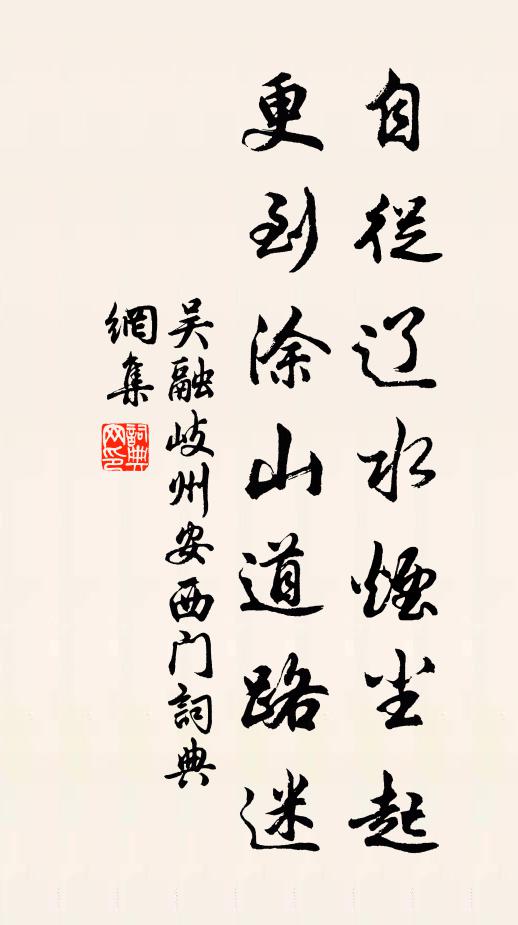 自從辽水煙尘起
更到涂山道路迷
吴融岐州安西门詞典
網集
詞典网印